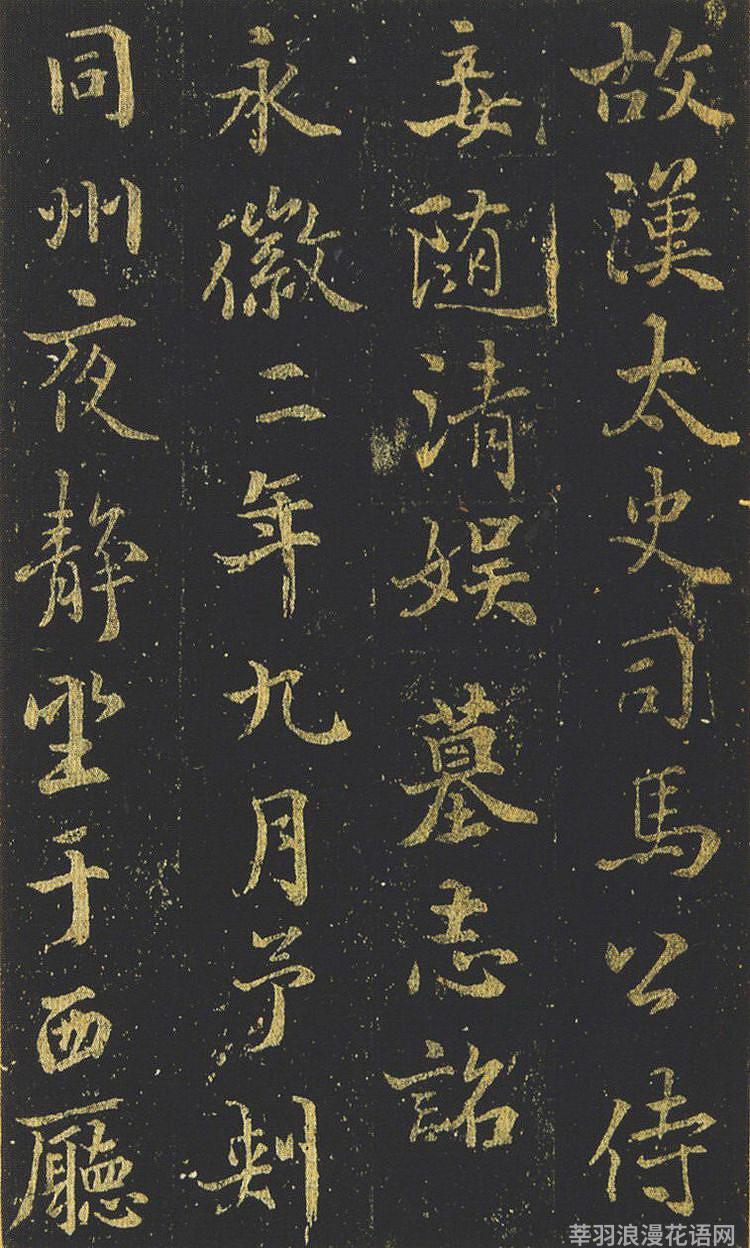 故漢太史司馬公侍
妾随清娱墓志銘
永徽二年九月予判
同州夜静坐于西廳
莘羽浪漫花语网